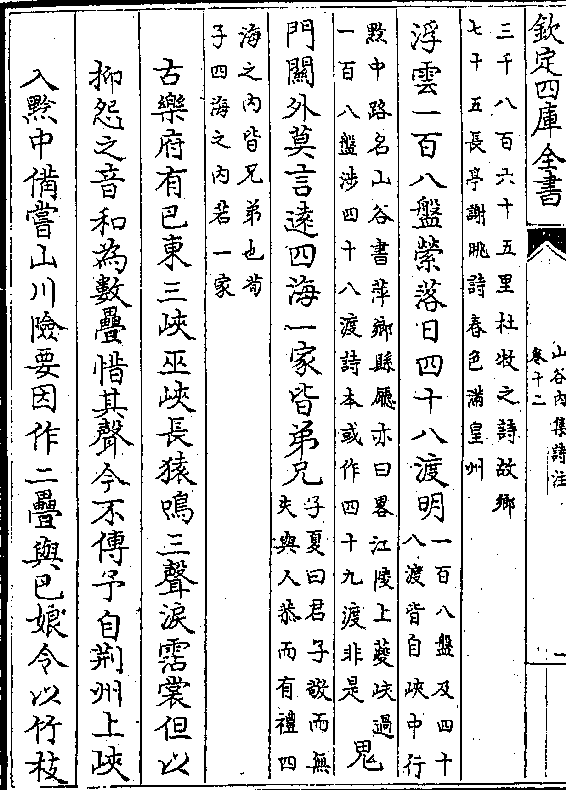 欽定四庫全書
山谷內集詩注
卷十二
一
三千八百六十五里杜牧之詩故鄉
七十五長亭謝朓詩春色滿皇州
浮雲一百八盤縈落日四十八渡明
一百八盤及四十
八渡皆自峽中行
黔中路名山谷書萍鄉縣廳亦曰畧江陵上夔峽過
一百八盤涉四十八渡詩本或作四十九渡非是
鬼
門關外莫言逺四海一家皆弟兄
子夏曰君子敬而無
失與人恭而有禮四
海之內皆兄弟也荀
子四海之內若一家
古樂府有巴東三峽巫峽長猿鳴三聲淚霑裳但以
抑怨之音和為數疊惜其聲今不傳予自荆州上峽
入黔中備嘗山川險要因作二疊與巴娘令以竹枝